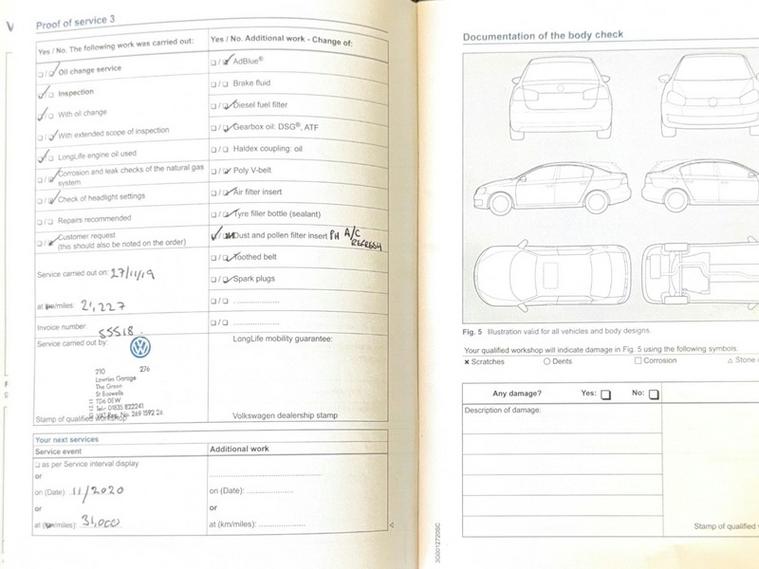 Proof of service 3
Yes / No. The following work was carried out:
Oil change service
Inspection
With oil change
With extended scope of inspection
LongLife engine oil used
Corrosion and leak checks of the natural gas
system
Check of headlight settings
Repairs recommended
Customer request
(this should also be noted on the order)
Service carried out on: 27/11/19
at km/miles: 21,227
Invoice number: 55518
Service carried out by:
210 276
Lawries Garage
The Green
St Boswells
TD6 0EW
Tel- 01835 822241
VAT Reg. No. 269 1592 26
Stamp of qualified workshop
Yes / No. Additional work - Change of:
AdBlue®
Brake fluid
Diesel fuel filter
Gearbox oil: DSG®, ATF
Haldex coupling: oil
Poly V-belt
Air filter insert
Tyre filler bottle (sealant)
Dust and pollen filter insert PH A/C
REFRESH
Toothed belt
Spark plugs
LongLife mobility guarantee:
Volkswagen dealership stamp
Your next services
Service event
as per Service interval display
or
on (Date): 11/2020
or
at (km/miles): 31,000
Additional work
on (Date):
or
at (km/miles):
Documentation of the body check
Fig. 5 Illustration valid for all vehicles and body designs.
Your qualified workshop will indicate damage in Fig. 5 using the following symbols:
Scratches Dents Corrosion Stone
Any damage? Yes: No:
Description of damage:
Stamp of qualified
3G0012720SC